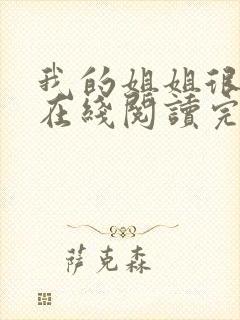 我的姐姐很
在綫閱讀完
萨克森